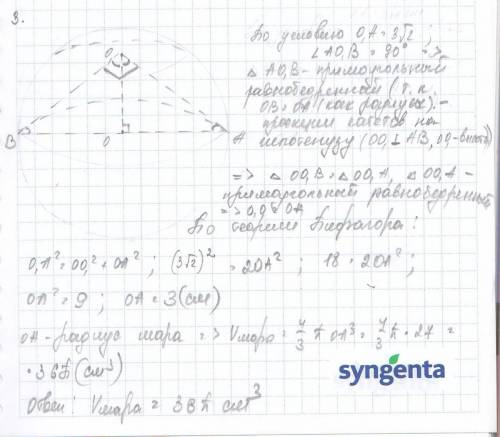 3.
По условию O₁A = 3√2 ;
∠AO₁B = 90° =>
△ AO₁B - прямоугольный
равнобедренный (т. к.
OB = OA (как радиусы) -
проекции катетов на
гипотенузу (OO₁ ⊥ AB,
=> △ OO₁B = △ OO₁A, △ OO₁A -
прямоугольный равнобедренный
=> O₁O = OA
По теореме Пифагора :
O₁A² = OO₁² + OA² ; (3√2)² = 2OA² ; 18 = 2OA² ;
OA² = 9 ; OA = 3 (см)
OA - радиус шара => Vшара = 4/3 π OA³ = 4/3 π · 27 =
= 36π (см³)
Ответ : Vшара = 36π см³
O₁
B
O
A
syngenta